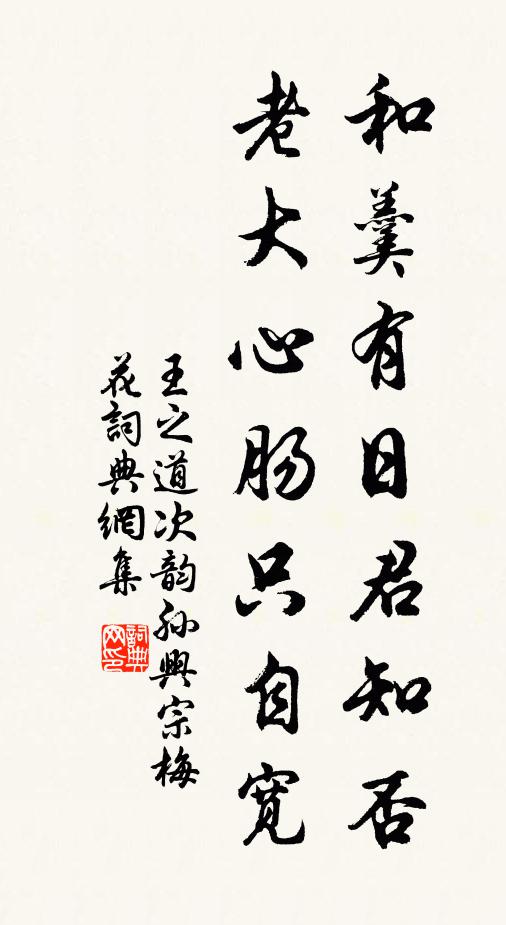 和羹有日君知否
老大心肠只自寬
王之道次韵孙興宗梅
花詞典網集
詞典
网印